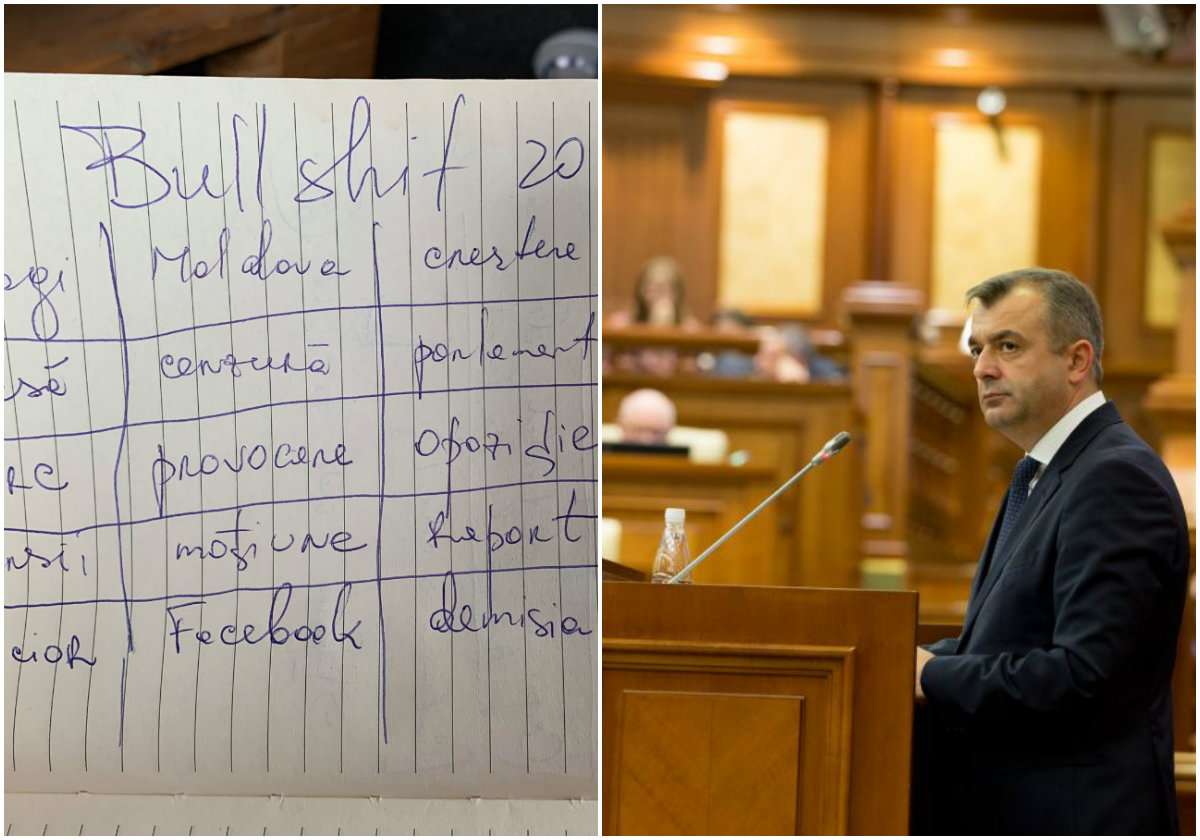 Bull shit 20
ogi Moldova creștere
să cenzură parlament
RC provocare opoziție
nsii moțiune Raport
cior Facebook demisia